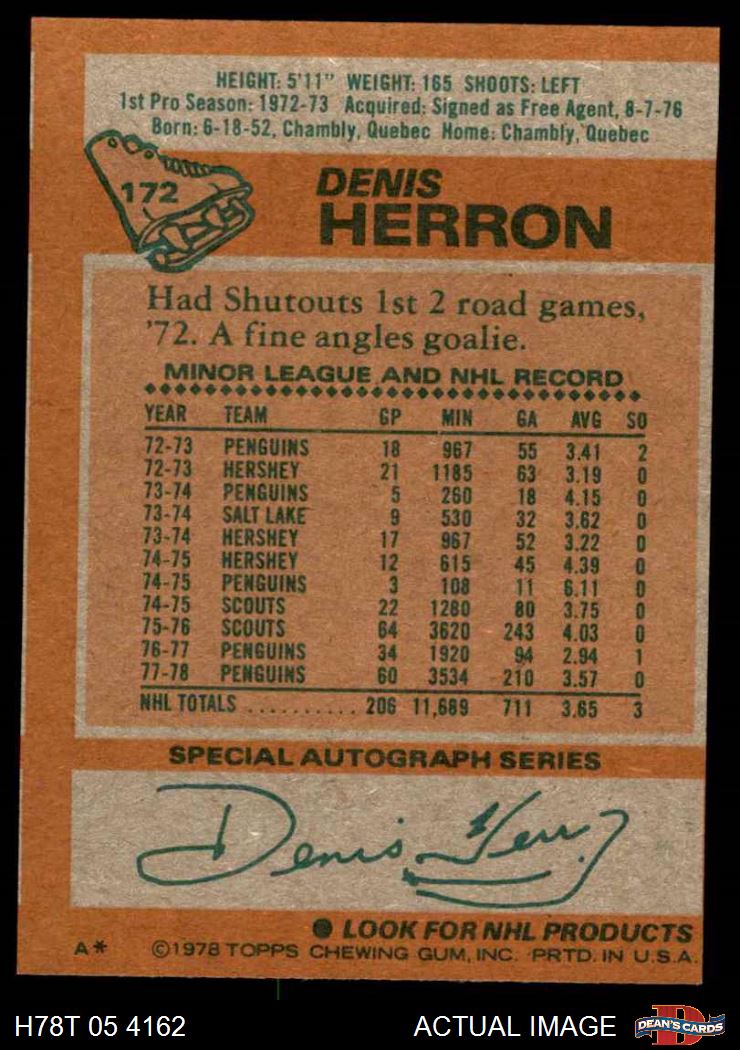 HEIGHT: 5'11" WEIGHT: 165 SHOOTS: LEFT
1st Pro Season: 1972-73 Acquired: Signed as Free Agent, 8-7-76
Born: 6-18-52, Chambly, Quebec Home: Chambly, Quebec
172
DENIS
HERRON
Had Shutouts 1st 2 road games,
'72. A fine angles goalie.
MINOR LEAGUE AND NHL RECORD
YEAR TEAM GP MIN GA AVG SO
72-73 PENGUINS 18 967 55 3.41 2
72-73 HERSHEY 21 1185 63 3.19 0
73-74 PENGUINS 5 260 18 4.15 0
73-74 SALT LAKE 9 530 32 3.62 0
73-74 HERSHEY 17 967 52 3.22 0
74-75 HERSHEY 12 615 45 4.39 0
74-75 PENGUINS 3 108 11 6.11 0
74-75 SCOUTS 22 1280 80 3.75 0
75-76 SCOUTS 64 3620 243 4.03 0
76-77 PENGUINS 34 1920 94 2.94 1
77-78 PENGUINS 60 3534 210 3.57 0
NHL TOTALS .......... 206 11,689 711 3.65 3
SPECIAL AUTOGRAPH SERIES
Denis Herron
● LOOK FOR NHL PRODUCTS
A* ©1978 TOPPS CHEWING GUM, INC. PRTD. IN U.S.A.
H78T 05 4162 ACTUAL IMAGE DEAN'S CARDS